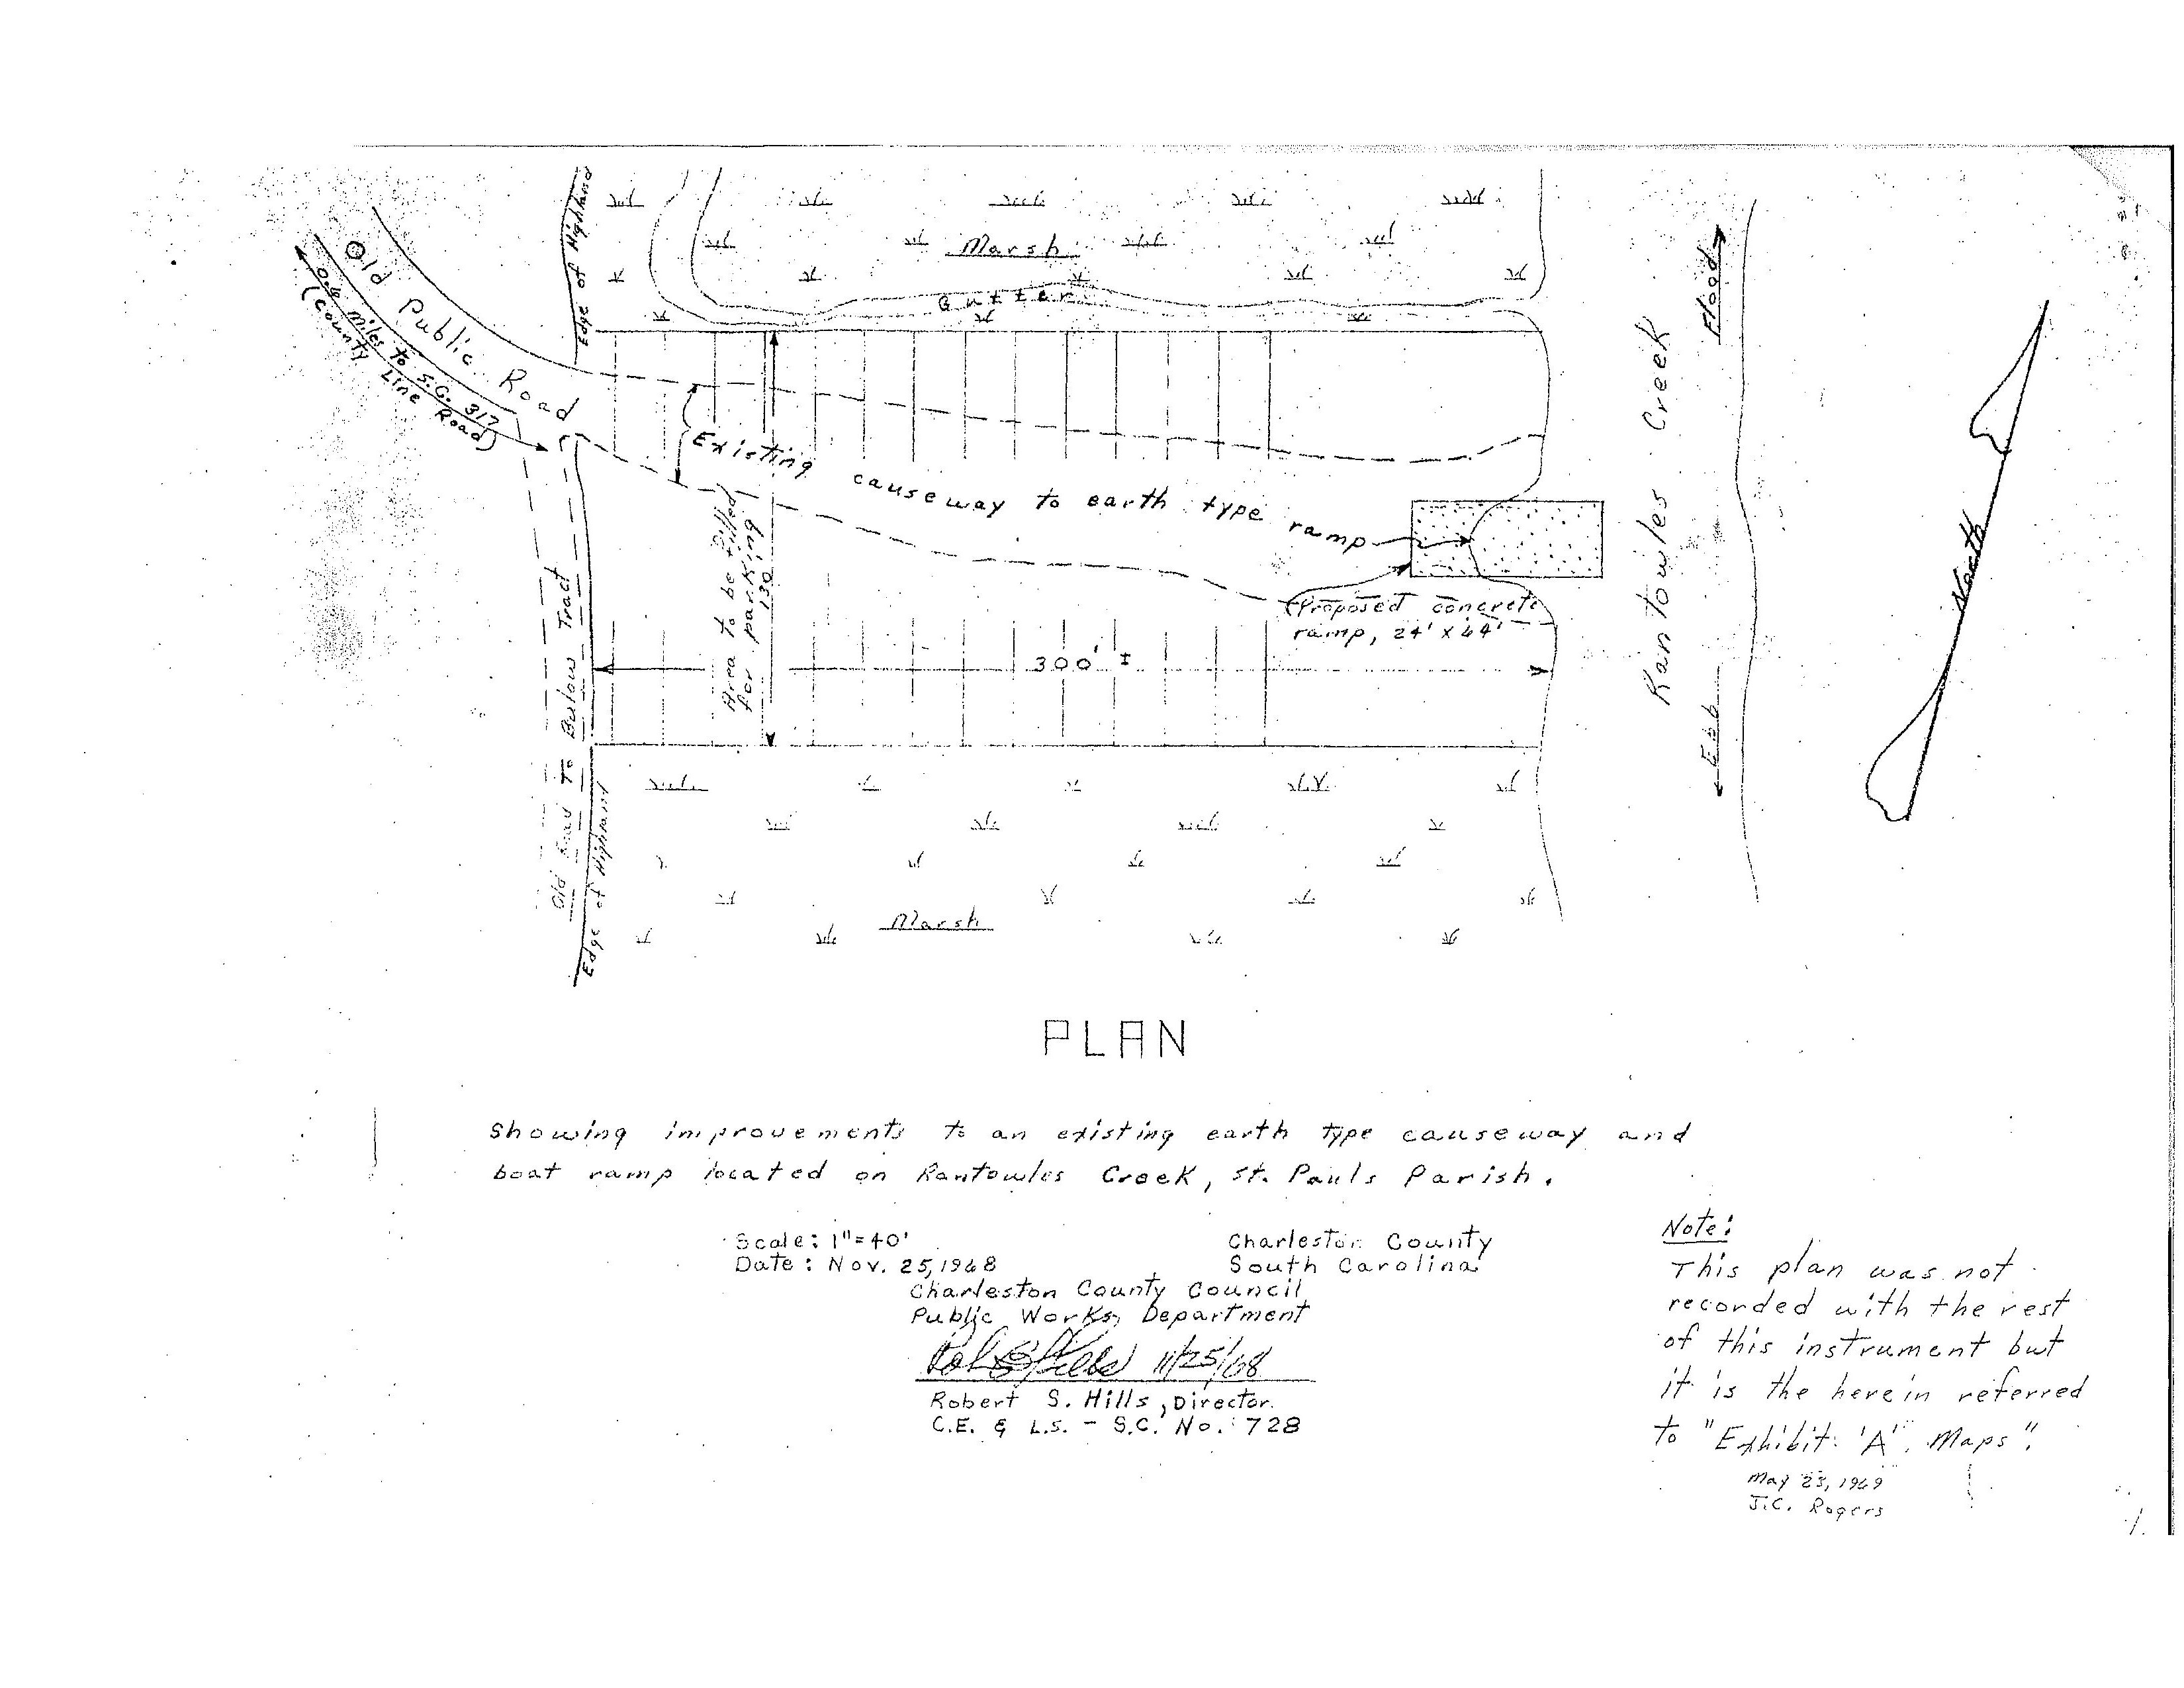 Edge of Highland
Marsh
Gutter
Old Public Road
0.6 miles to S.C. 317
(County Line Road)
Existing causeway to earth type ramp
Area to be filled
for parking
130'
Proposed concrete
ramp, 24' x 64'
300' ±
Rantowles Creek
Flood
Ebb
North
Old Road To Bulow Tract
Edge of Highland
Marsh
PLAN
Showing improvements to an existing earth type causeway and
boat ramp located on Rantowles Creek, St. Pauls Parish.
Scale: 1"=40'
Date: Nov. 25, 1968
Charleston County
South Carolina
Charleston County Council
Public Works Department
11/25/68
Robert S. Hills, Director
C.E. & L.S. - S.C. No. 728
Note:
This plan was not
recorded with the rest
of this instrument but
it is the herein referred
to "Exhibit 'A' Maps".
May 23, 1969
J.C. Rogers